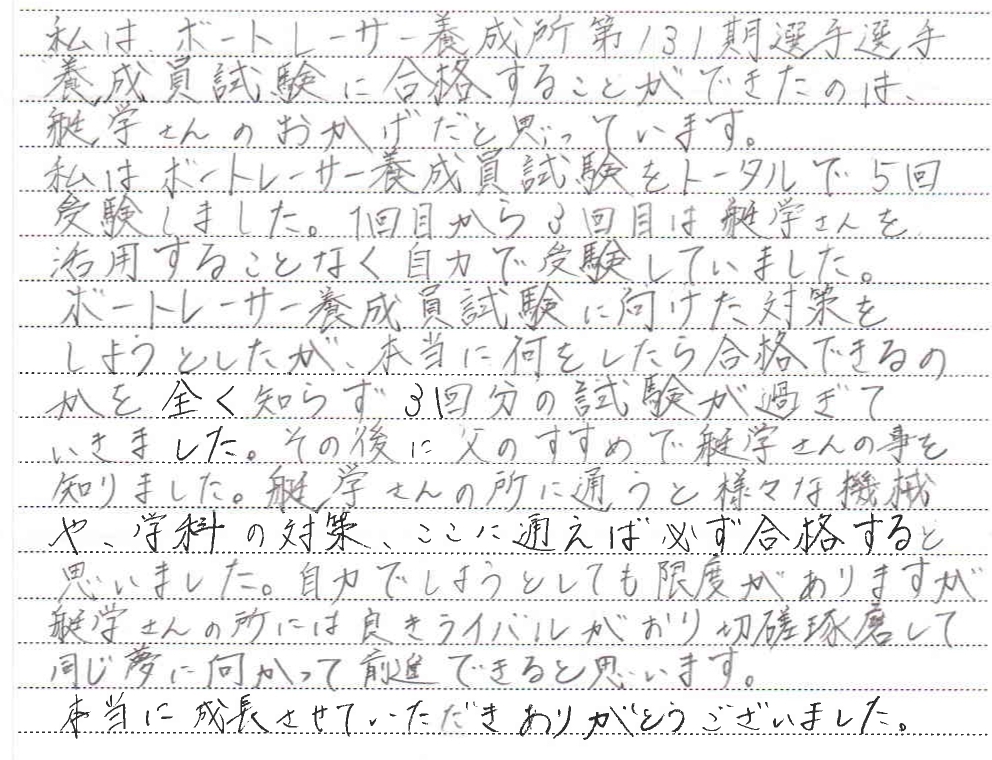 私は、ボートレーサー養成所第131期選手選手
養成員試験に合格することができたのは、
艇学さんのおかげだと思っています。
私はボートレーサー養成員試験をトータルで5回
受験しました。1回目から3回目は艇学さんを
活用することなく自力で受験していました。
ボートレーサー養成員試験に向けた対策を
しようとしたが、本当に何をしたら合格できるの
かを全く知らず31回分の試験が過ぎて
いきました。その後に父のすすめで艇学さんの事を
知りました。艇学さんの所に通うと様々な機械
や、学科の対策、ここに通えば必ず合格すると
思いました。自力でしようとしても限度がありますが
艇学さんの所には良きライバルがおり切磋琢磨して
同じ夢に向かって前進できると思います。
本当に成長させていただきありがとうございました。